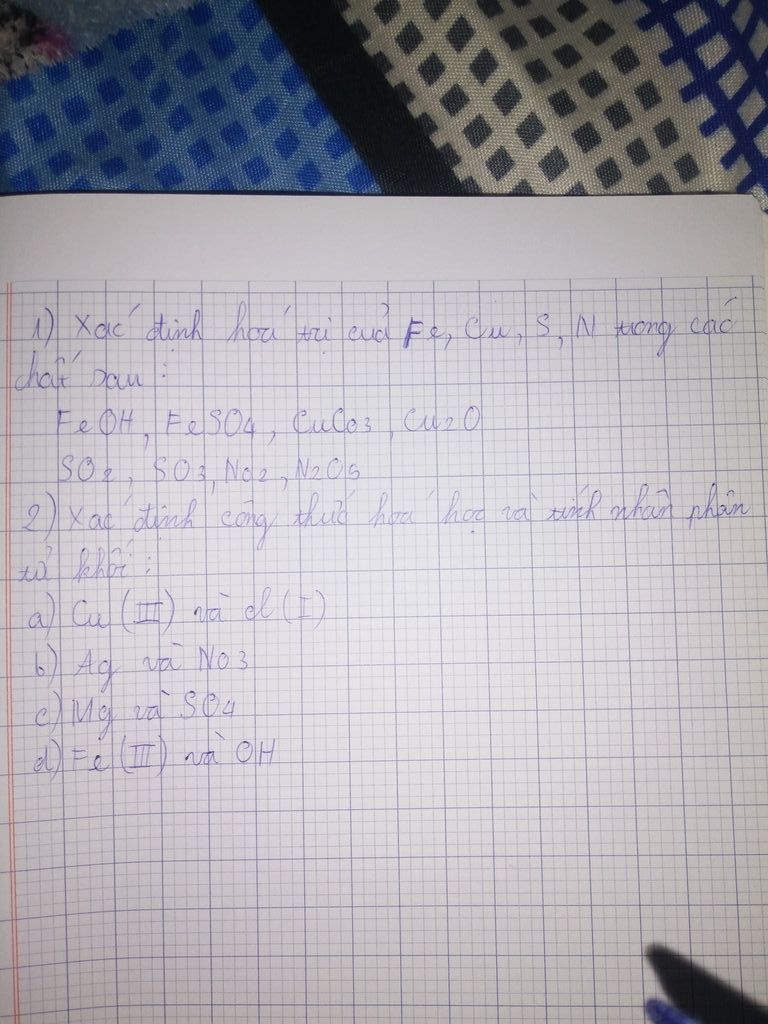 1) Xác định hoá trị của Fe, Cu, S, N trong các
chất sau :
FeOH, FeSO4, CuCo3, Cu2O
SO2, SO3, No2, N2O5
2) Xác định công thức hoá học và tính nhân phân
tử khối :
a) Cu (III) và cl (I)
b) Ag và No3
c) Mg và SO4
d) Fe (III) và OH